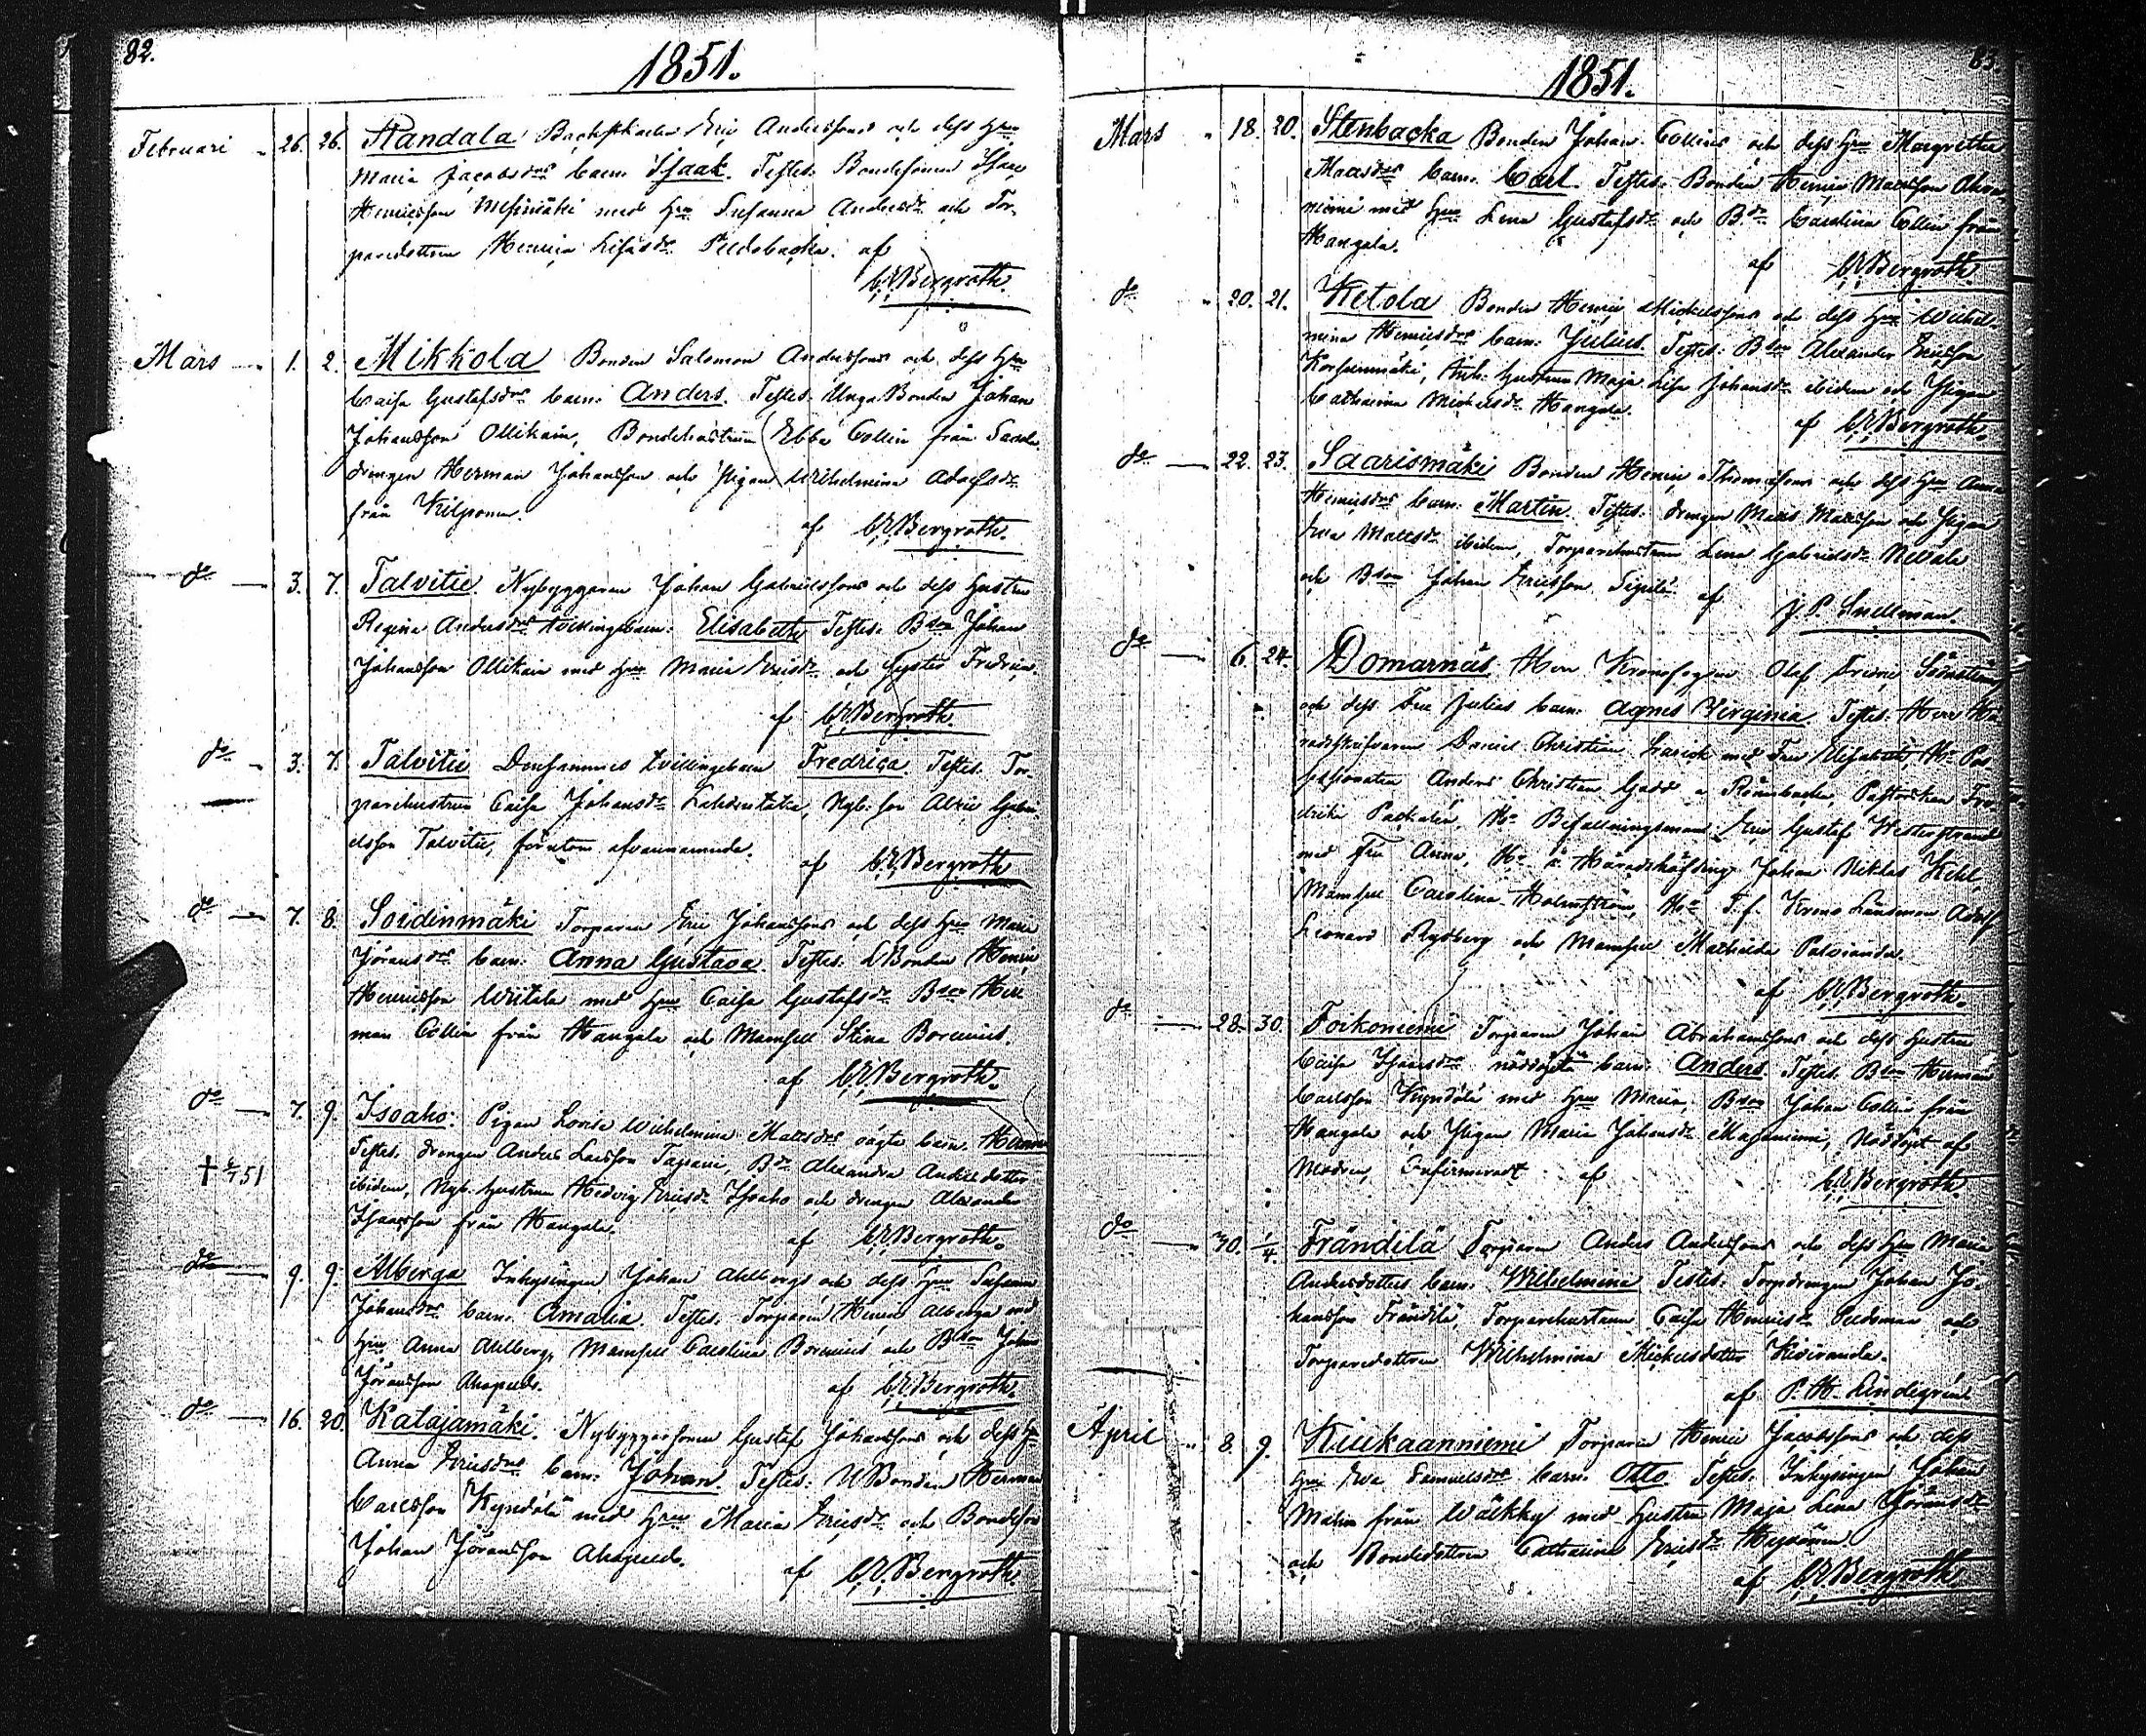 82.
1851.
Februari 26. 26. Randala Backstkarlen Eric Anderssons och dess Hru
Maria Jacobsdrs barn: Isaak. Testes: Bondesonen Isaac
Henricsson med Hru Susanna Andersdr och Tor-
paredottren Henrica Lisasdr Peldobacka. af
C.E. Bergroth.
Mars 1. 2. Mikkola Bonden Salomon Anderssons och dess Hru
Caisa Gustafsdrs barn: Anders. Testes: Unga Bonden Johan
Johansson Ollikain, Bondehustrun Ebba Collin från
drengen Herman Johansson och Pigan Wilhelmina Adolfsdr
från Kilponen.
af C.E. Bergroth.
do 3. 7. Talvitie. Nybyggaren Johan Gabrielssons och dess hustru
Regina Andersdrs tvillingebarn: Elisabeth Testes: Bson Johan
Johansson Ollikain med Hru Maria Ericsdr och Syster Fredrica.
af C.E. Bergroth
do 3. 7. Talvitie Densammes tvillingebarn Fredrica. Testes: Tor-
parehustrun Caisa Johansdr Nyb: son Gabri-
elsson Talvitie, förutom ofvannämnde.
af C.E. Bergroth
do 7. 8. Soidinmäki Torparen Eric Johanssons och dess Hru Maria
Jöransdrs barn: Anna Gustava. Testes: Bonden Henric
Henricsson Wiitala med Hru Caisa Gustafsdr Bson Her-
man Collin från Kangala och Mamsell Stina Borenius.
af C.E. Bergroth.
do 7. 9. Isoaho: Pigan Lovisa Wilhelmina Mattsdrs oägta barn.
† 51 Testes: drengen Anders Larsson Tapani, Bdr Alexandra Andersdotter
ibidem, Nyb. hustrun Hedvig Ericsdr Isoaho och drengen Alexander
Isaacsson från Kangala.
af C.E. Bergroth.
do 9. 9. Alberga Inhysingen Johan Ahlbergs och dess Hru Susanna
Johansdrs barn: Amalia. Testes: Torparen Henric Alberga med
Hru Anna Ahlberg, Mamsell Carolina Borenius och Bson Johan
Jöransson
af C.E. Bergroth.
do 16. 20. Katajamäki. Nybyggaresonen Gustaf Johanssons och dess Hru
Anna Ericsdrs barn: Johan. Testes: U Bonden Herman
Carlsson Kyndölä med Hru Maria Ericsdr och Bondeson
Johan Jöransson
af C.E. Bergroth.
83.
1851.
Mars 18. 20. Stenbacka Bonden Johan Collins och dess Hru Margretha
Matsdrs barn: Carl. Testes: Bonden Henric Mattsson
niemi med Hru Lena Gustafsdr och Bdr Carolina Collin från
Kangala.
af C.E. Bergroth.
do 20. 21. Ketola Bonden Henric Mickelssons och dess Hru Wilhel-
mina Henricsdrs barn: Julius. Testes: Bson Alexander Ericsson
Korpunmäki, hustrun Maja Lisa Johansdr ibidem och Pigan
Catharina Mickelsdr Kangala.
af C.E. Bergroth.
do 22. 23. Saarismäki Bonden Henric Thomassons och dess Hru Anna
Henricsdrs barn: Martin. Testes: drengen Matts Mattsson och Pigan
Eva Mattsdr ibidem, Torparehustrun Lena Gabrielsdr Nevala
och Bson Johan Ericsson Sipilä.
af J.P. Snellman.
do 6. 24. Domarnäs Herr Kronofogden Olof Fredric
och dess Fru Julias barn: Agnes Virginia. Testes: Herr Hä-
radsskrifvaren Daniel Christian med Fru Elisabeth Hr Pos-
sessionaten Anders Christian Gadd Rönnbacka, Pastorskan Fre-
drika Hr Befallningsmann Eric Gustaf Westerstrand
med Fru Anna, Hr Häradshöfding Johan Niklas
Mamsell Carolina Holmström, Hr T.f. Krono Länsman Adolf
Leonard Rydberg och Mamsell Mathilda
af C.E. Bergroth.
do 28. 30. Toikoniemi Torparen Johan Abrahamssons och dess hustru
Caisa Isaacsdrs nöddöpta barn: Anders. Testes: Bson Herman
Carlsson Kyndölä med Hru Maria, Bson Johan Collin från
Kangala och Pigan Maria Johansdr Majaniemi, Nöddöpt af
Modren, Confirmeradt af C.E. Bergroth.
do 30. 1/4 Frändilä Torparen Anders Anderssons och dess Hru Maria
Andersdotters barn: Wilhelmina Testes: Torpdrengen Johan Jo-
hansson Frändilä, Torparehustrun Caisa Henricsdr och
Torparedottren Wilhelmina Mickelsdotter Kiviranda.
af P.H. Lindegrén
April 8. 9. Kiukaanniemi Torparen Henric Jacobssons och dess
Hru Eva Samuelsdrs barn: Otto. Testes: Inhysingen Johan
Malm från Wälkky med hustru Maja Lena Jöransdr
och Bondedottren Catharina Ericsdr
af C.E. Bergroth